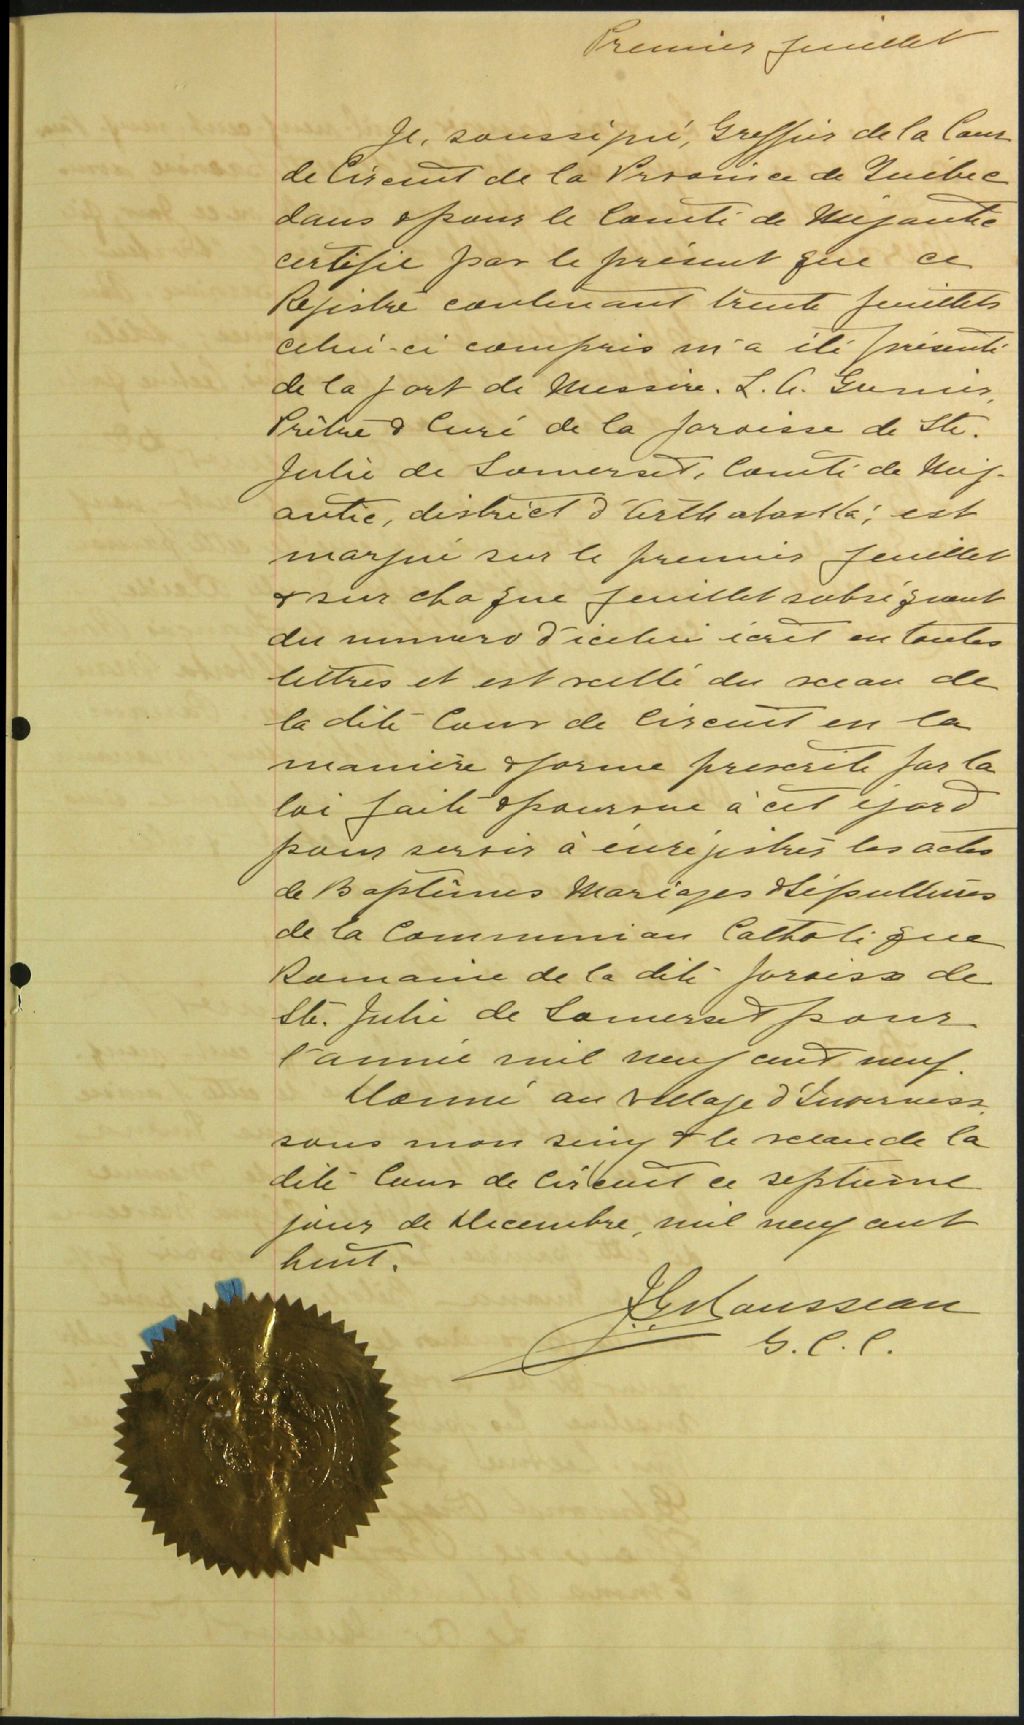 Premier feuillet
Je, soussigné, Greffier de la Cour
de Circuit de la Province de Québec
dans & pour le Comté de Mégantic
certifie par le présent que ce
Registre contenant trente feuillets
celui-ci compris m'a été présenté
de la part de Messire. L. A.
Prêtre & Curé de la paroisse de Ste.
Julie de Somerset, Comté de Még-
antic, district d'Arthabaska, est
marqué sur le premier feuillet
& sur chaque feuillet subséquent
du numero d'icelui écrit en toutes
lettres et est scellé du sceau de
la dite Cour de Circuit en la
manière & forme prescrite par la
loi faite & pourvue à cet égard
pour servir à enrégistrer les actes
de Baptêmes Mariages & Sépultures
de la Communion Catholique
Romaine de la dite paroisse de
Ste. Julie de Somerset pour
l'année mil neuf cent neuf.
Donné au village d'Inverness
sous mon seing & le sceau de la
dite Cour de Circuit ce septième
jour de Decembre, mil neuf cent
huit.
Rousseau
G. C. C.